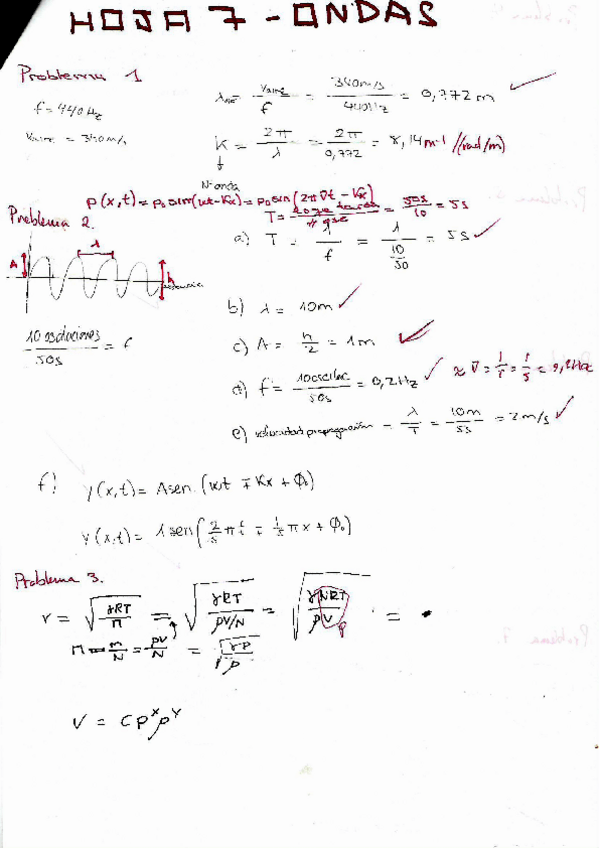 HOJA 7 - ONDAS
Problema 1
f = 440 Hz
Vaire = 340 m/s
λaire = Vaire / f = 340 m/s / 440 Hz = 0,772 m
K = 2π / λ = 2π / 0,772 = 8,14 m-1 //(rad/m)
Nº onda
p(x,t) = p₀ sin(wt - Kx) = p₀ sen(2πνt - Kx)
Problema 2.
T = = 50s / 10 = 5s
a) T = 1 / f = 1 / 10/50 = 5s
A λ h
10 oscilaciones / 50s = f
b) λ = 10m
c) A = h / 2 = 1m
d) f = 10 oscilac / 50s = 0,2 Hz
ν = 1/T = 1/5 = 0,2 Hz
e) velocidad propagación = λ / T = 10m / 5s = 2 m/s
f) y(x,t) = A sen (wt ∓ Kx + Φ₀)
y(x,t) = 1 sen(2/5 πt ∓ 1/5 πx + Φ₀)
Problema 3.
v = √(γRT / M) = √(γRT / ρV/N) = √(γNRT / ρV) =
P
M = m/N = ρV/N = √(γP / ρ)
V = C P^x ρ^y